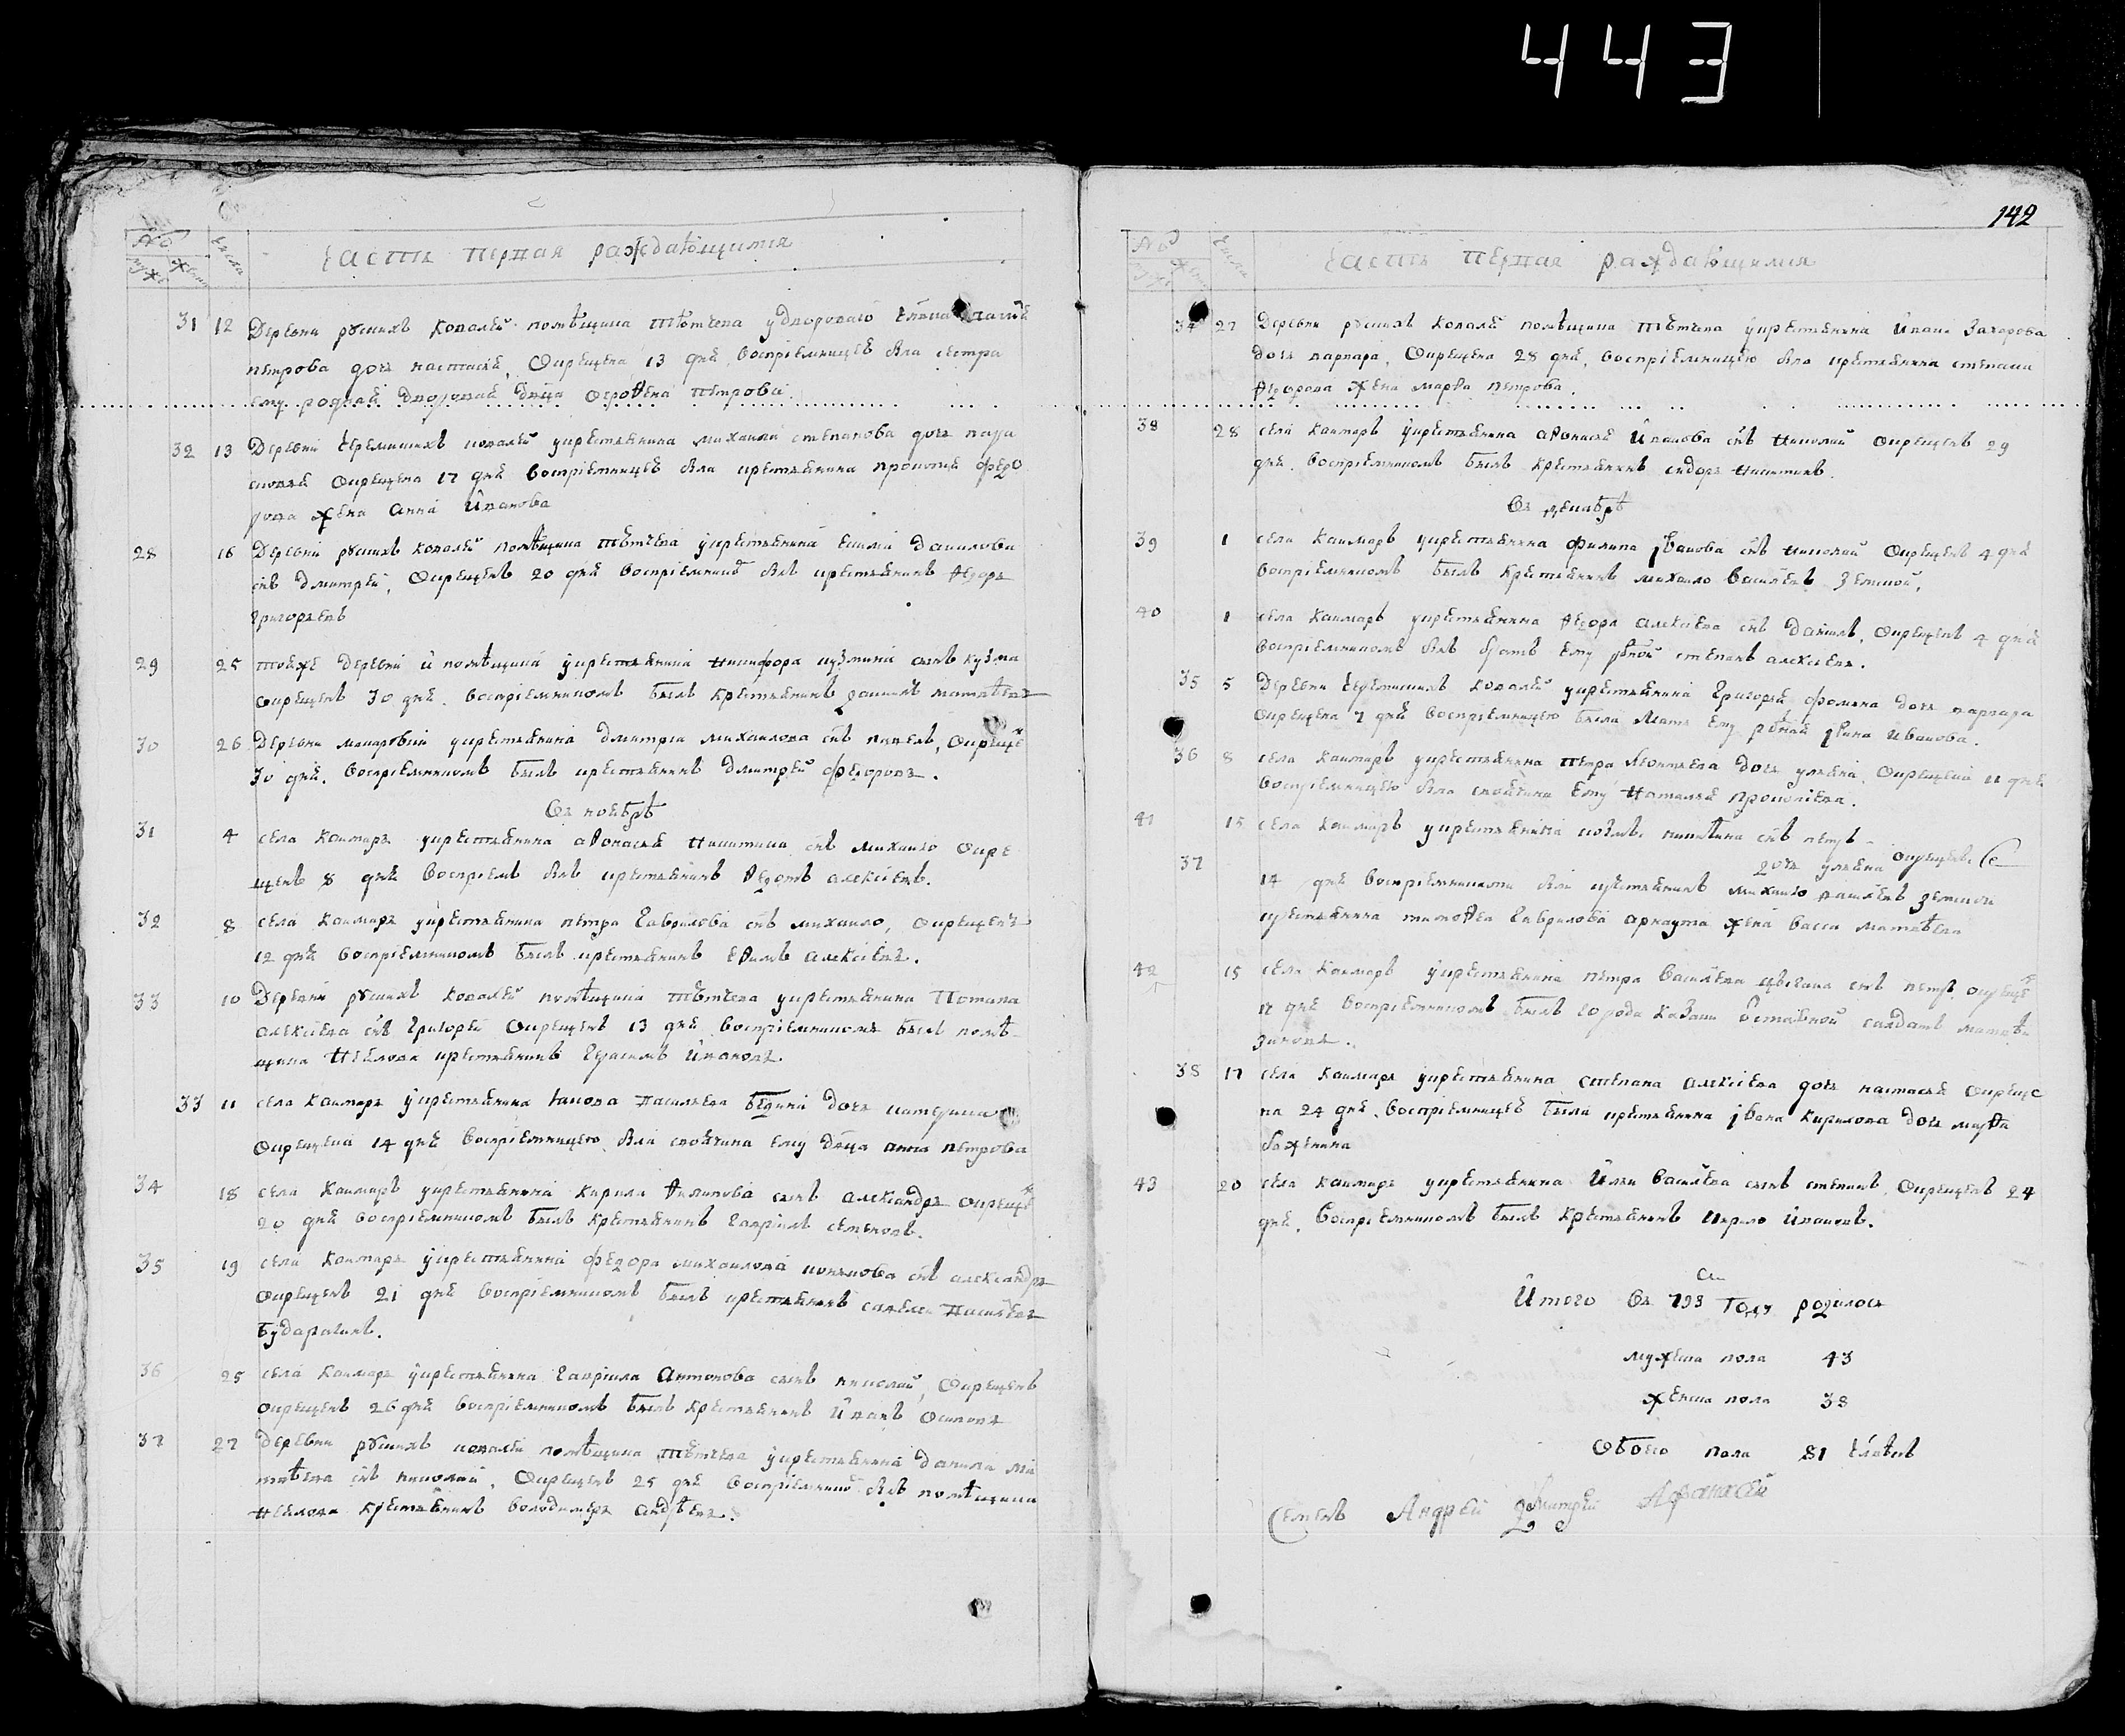 443
№ числа
муж жен
часть первая раждающимся
31 12 Деревни рускихъ ковалей помѣщика тѣтчева у двороваго
петрова дочь настасья, окрещена 13 дня, воспрiемницею была сестра
ему родная дворовая девица огрофена петрова
32 13 Деревни черемискихъ ковалей у крестьянина михаила степанова дочь пара
сковья окрещена 17 дня воспрiемницею была крестьянина прокопья федо
рова жена анна иванова
28 16 Деревни рускихъ ковалей помѣщика тѣтчева у крестьянина екима данилова
снъ дмитрей, окрещенъ 20 дня воспрiемником былъ крестьянинъ ѳедоръ
григорьевъ
29 25 тойже деревни и помѣщика у крестьянина никифора кузмина сынъ кузма
окрещенъ 30 дня. воспрiемникомъ былъ крестьянинъ матвѣевъ
30 26 Деревни макаровки у крестьянина дмитрея михаилова снъ павелъ, окреще
30 дня. воспрiемникомъ былъ крестьянинъ дмитрей федоровъ.
Въ ноябрѣ
31 4 села каимаръ у крестьянина аѳонасья никитина снъ михаило окре
щенъ 8 дня воспрiем былъ крестьянинъ ѳедотъ алексѣевъ.
32 8 села каимаръ у крестьянина петра гаврилова снъ михаило, окрещенъ
12 дня воспрiемникомъ былъ крестьянинъ еѳимъ алексѣевъ.
33 10 Деревни рускихъ ковалей помѣщика тѣтчева у крестьянина потапа
алексѣева снъ григорей окрещенъ 13 дня воспрiемникомъ былъ помѣ
щика неѣлова крестьянинъ герасимъ ивановъ.
33 11 села каимаръ у крестьянина якова васильева дочь катерина
окрещена 14 дня воспрiемницею была своячина ему девица анна петрова
34 18 села каимаръ у крестьянина кирила ѳилипова сынъ александръ окреще
20 дня воспрiемникомъ былъ крестьянинъ гаврiилъ семеновъ.
35 19 села каимаръ у крестьянина федора михаилова снъ александръ
окрещенъ 21 дня воспрiемникомъ былъ крестьянинъ савелей васильевъ
бударагинъ.
36 25 села каимаръ у крестьянина гаврiила антонова сынъ николай, окрещенъ
окрещенъ 26 дня воспрiемникомъ былъ крестьянинъ иванъ осиповъ
37 27 деревни рускихъ ковалей помѣщика тѣтчева у крестьянина данила ма
твѣева снъ николай. окрещенъ 25 дня воспрiемникомъ былъ помѣщика
неѣлова крестьянинъ володимеръ андрѣевъ.
142
№ числа
муж жен
часть первая раждающимся
34 27 Деревни рускихъ ковалей помѣщика тѣтчева у крестьянина ивана захарова
дочь варвара, окрещена 28 дня, воспрiемницею была крестьянина степана
ѳедорова жена марѳа петрова.
38 28 села каимаръ у крестьянина аѳонасья иванова снъ николай окрещенъ 29
дня. воспрiемникомъ былъ крестьянинъ сидоръ никитинъ.
Въ декабрѣ
39 1 села каимаръ у крестьянина филипа iванова снъ николай окрещенъ 4 дня
воспрiемникомъ былъ крестьянинъ михаило васильевъ земской,
40 1 села каимаръ у крестьянина ѳедора алексѣева снъ данилъ, окрещенъ 4 дня
воспрiемникомъ былъ братъ ему рдной степанъ алексѣевъ.
35 5 Деревни черемискихъ ковалей у крестьянина григорья фомина дочь варвара
окрещена 7 дня воспрiемницею была мать ему рдная iрина иванова.
36 8 села каимаръ у крестьянина петра леонтьева дочь ульяна, окрещена 11 дня
воспрiемницею была своячина ему наталья прокопьева.
41 15 села каимаръ у крестьянина никитина снъ петръ
37 дочь ульяна окрещены
17 дня воспрiемниками были крестьянинъ михаило васильевъ земской
крестьянина тимоѳея гаврилова арнаута жена васса матвѣева
42 15 села каимаръ у крестьянина петра васильева цыгана снъ петръ, окреще
17 дня воспрiемникомъ былъ города казани отставной салдатъ матвѣй
зиновъ.
38 17 села каимаръ у крестьянина степана алексѣева дочь настасья окреще
на 24 дня. воспрiемницею была крестьянина iвана кирилова дочь марѳа
баженина
43 20 села каимаръ у крестьянина ильи васильева сынъ степанъ, окрещенъ 24
дня, воспрiемникомъ былъ крестьянинъ кирило ивановъ.
Итого въ 793 году родилося
мужеска пола 43
женска пола 38
обоего пола 81 человѣкъ
Семенъ Андрей Дмитрей Афанасей